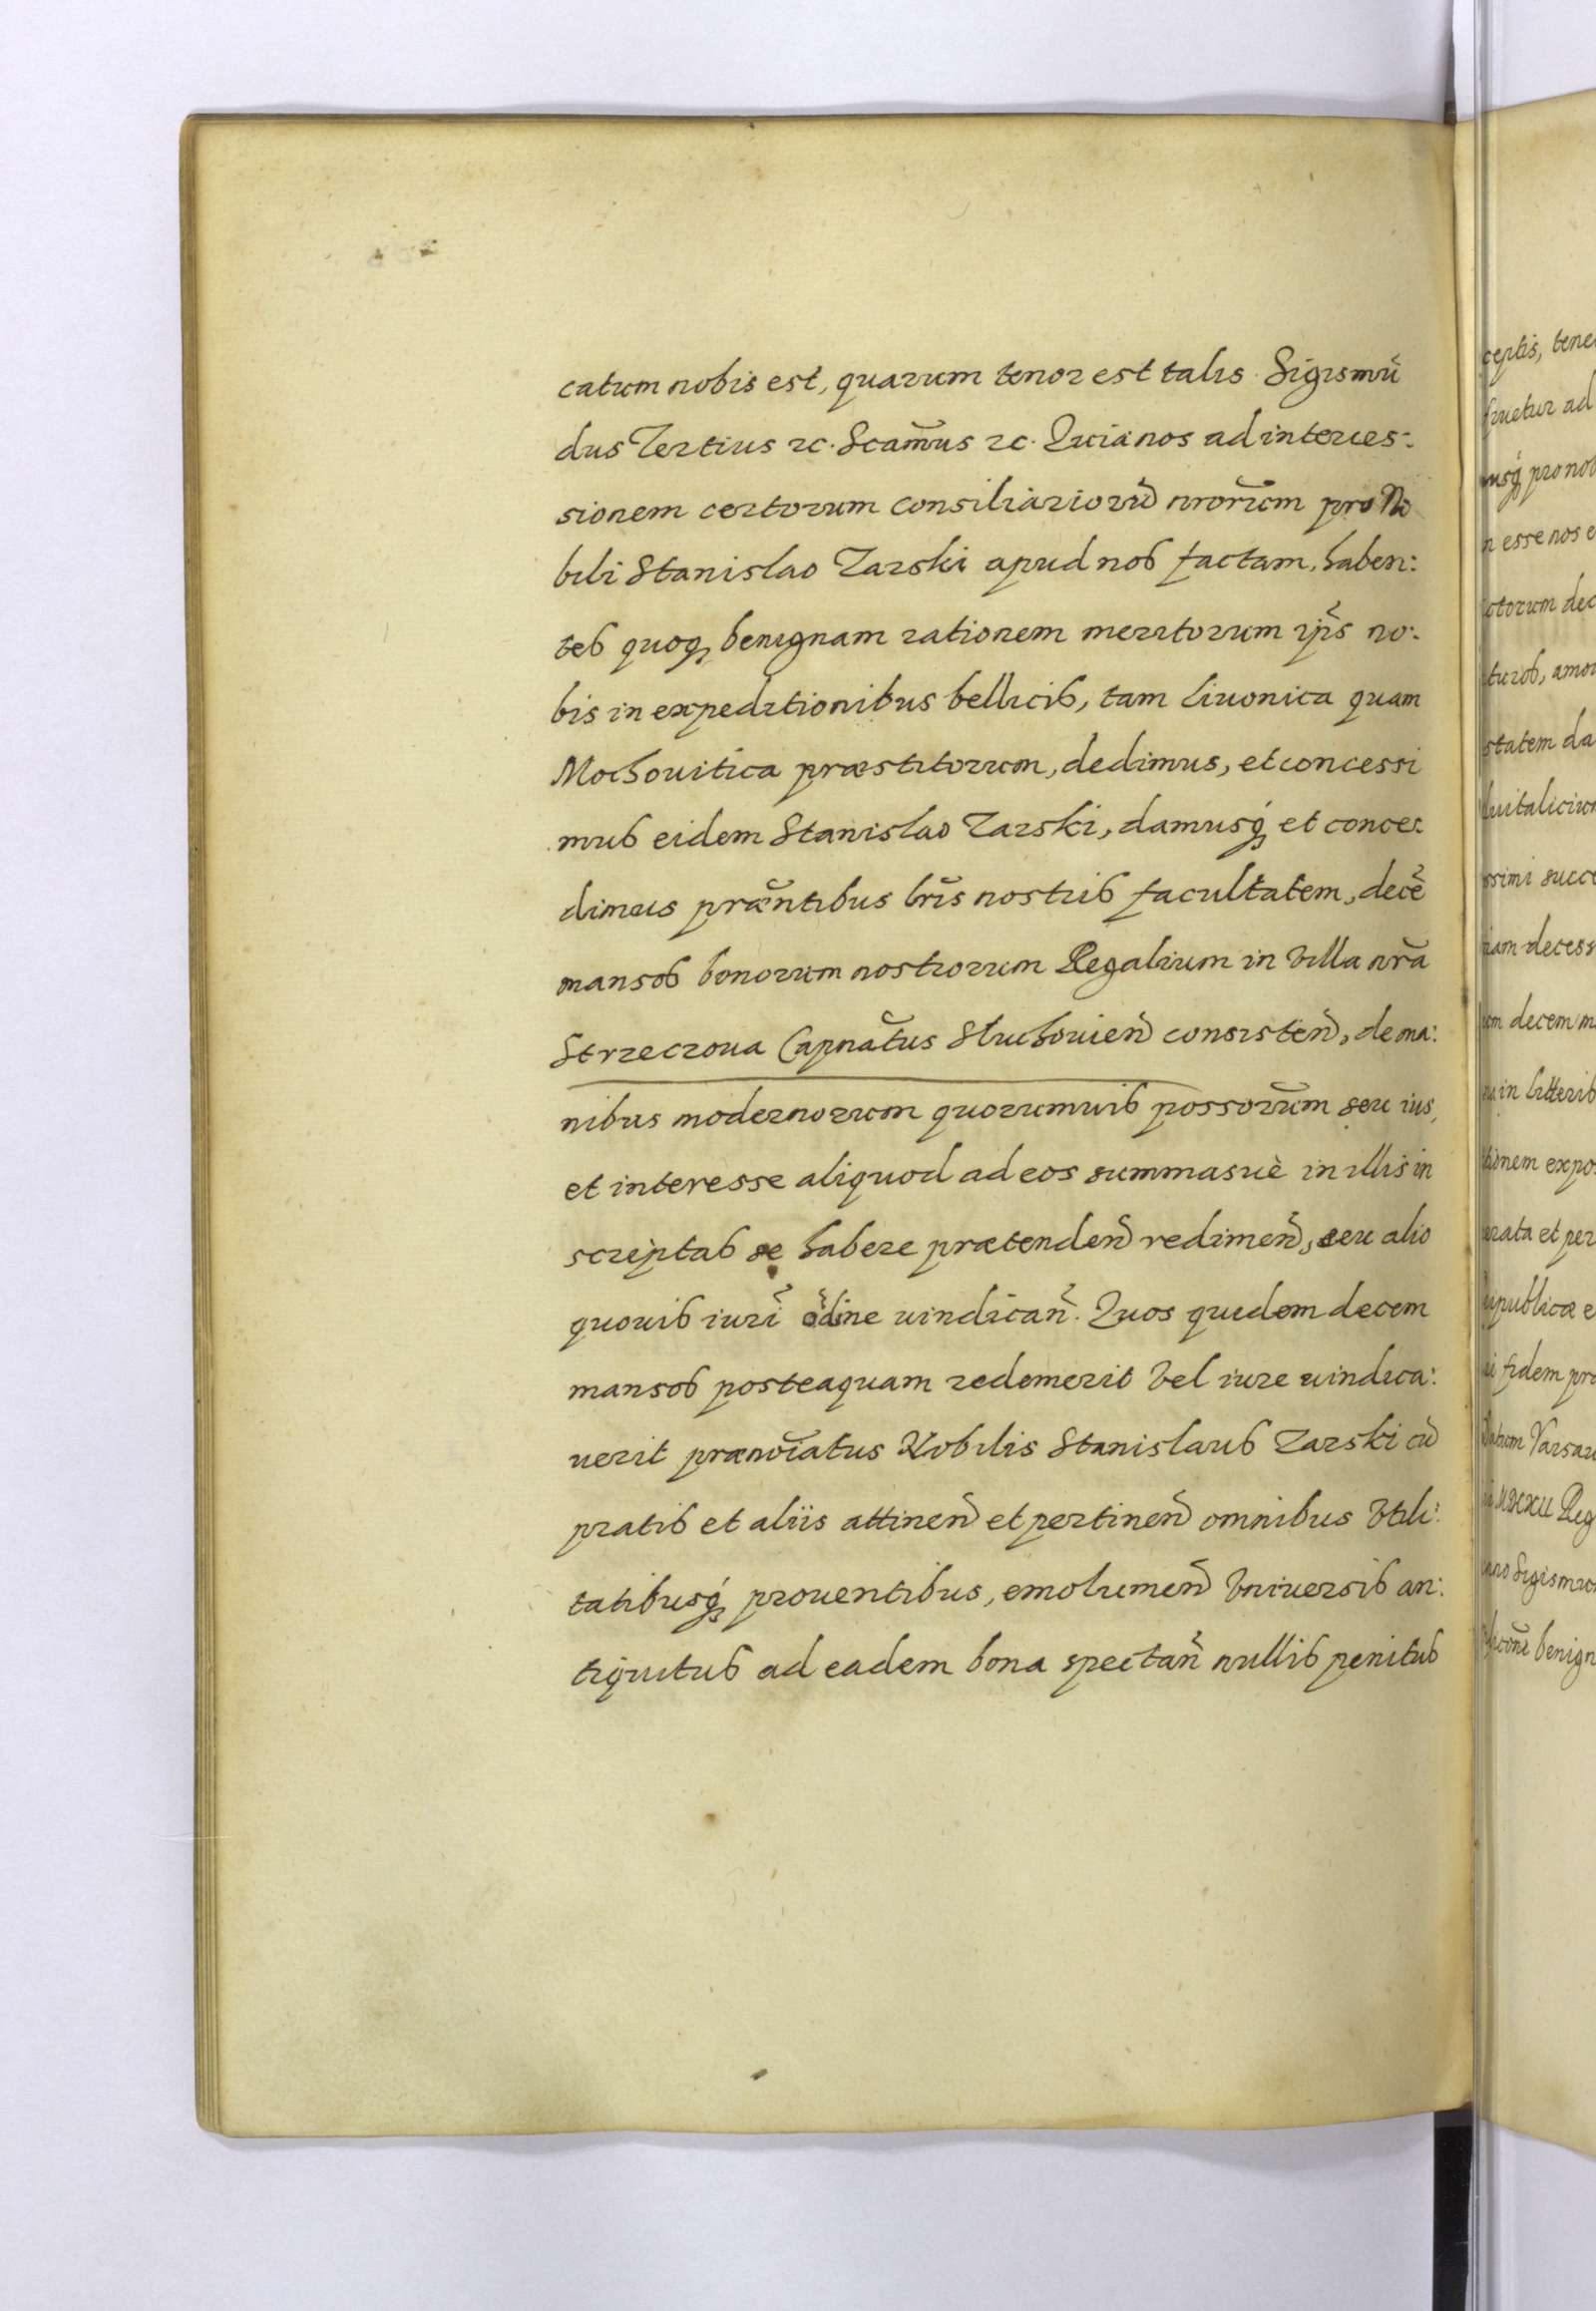 catum nobis est, quarum tenor est talis. Sigismū
dus Tertius etc. Scam̃us etc. Quia nos ad interces:
sionem certorum consiliariorū nrorũm pro No
bili Stanislao Zarski apud nos factam, haben:
tes quoq, benignam rationem meritorum ip̃s no:
bis in expeditionibus bellicis, tam Liuonica quam
Moschouitica præstitorum, dedimus, et concessi
mus eidem Stanislao Zarski, damusq́ et conce:
dimus præñtibus lr̃is nostris facultatem, decē
mansos bonorum nostrorum Regalium in villa nr̃a
Strzeczona Capnãtus Sluchouien̄ consisten̄, de ma:
nibus modernorum quorumuis possorũm seu ius,
et interesse aliquod ad eos summasuè in illis in
scriptas se habere prætenden̄ redimen̄, seu alio
quouis iurĩ oĩdine uindican̄. Quos quidem decem
mansos posteaquam redemerit vel iure uindica:
uerit prænoĩatus Nobilis Stanislaus Zarski cū
pratis et aliis attinen̄ et pertinen̄ omnibus vtili:
tatibusq́ prouentibus, emolumen̄ vniuersis an:
tiquitus ad eadem bona spectan̄ nullis penitus
ceptis, tene
fruetur ad
usq́ pro nob
n esse nos e
ctorum dec
turos, amo
statem da
ssimi succe
iam decess
um decem m
in litteris
tionem expo
erata et per
eipublicæ e
fidem pro
Datum Varsau
Reg
Sigismu
benign